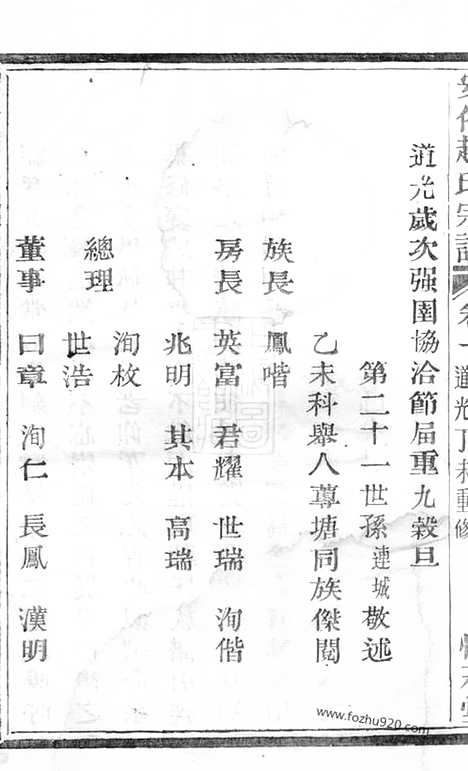 道光歲次强圉協洽節届重九穀旦
第二十一世孫連城敬述
乙未科舉人蓴塘同族傑閱
族長 鳳喈
房長 英富 君耀 世瑞 洵偕
兆明 其本 高瑞
總理 洵枚
世浩
董事 曰章 洵仁 長鳳 漢明
趙氏宗譜 卷一 道光丁未重修
www.fozhu920.com